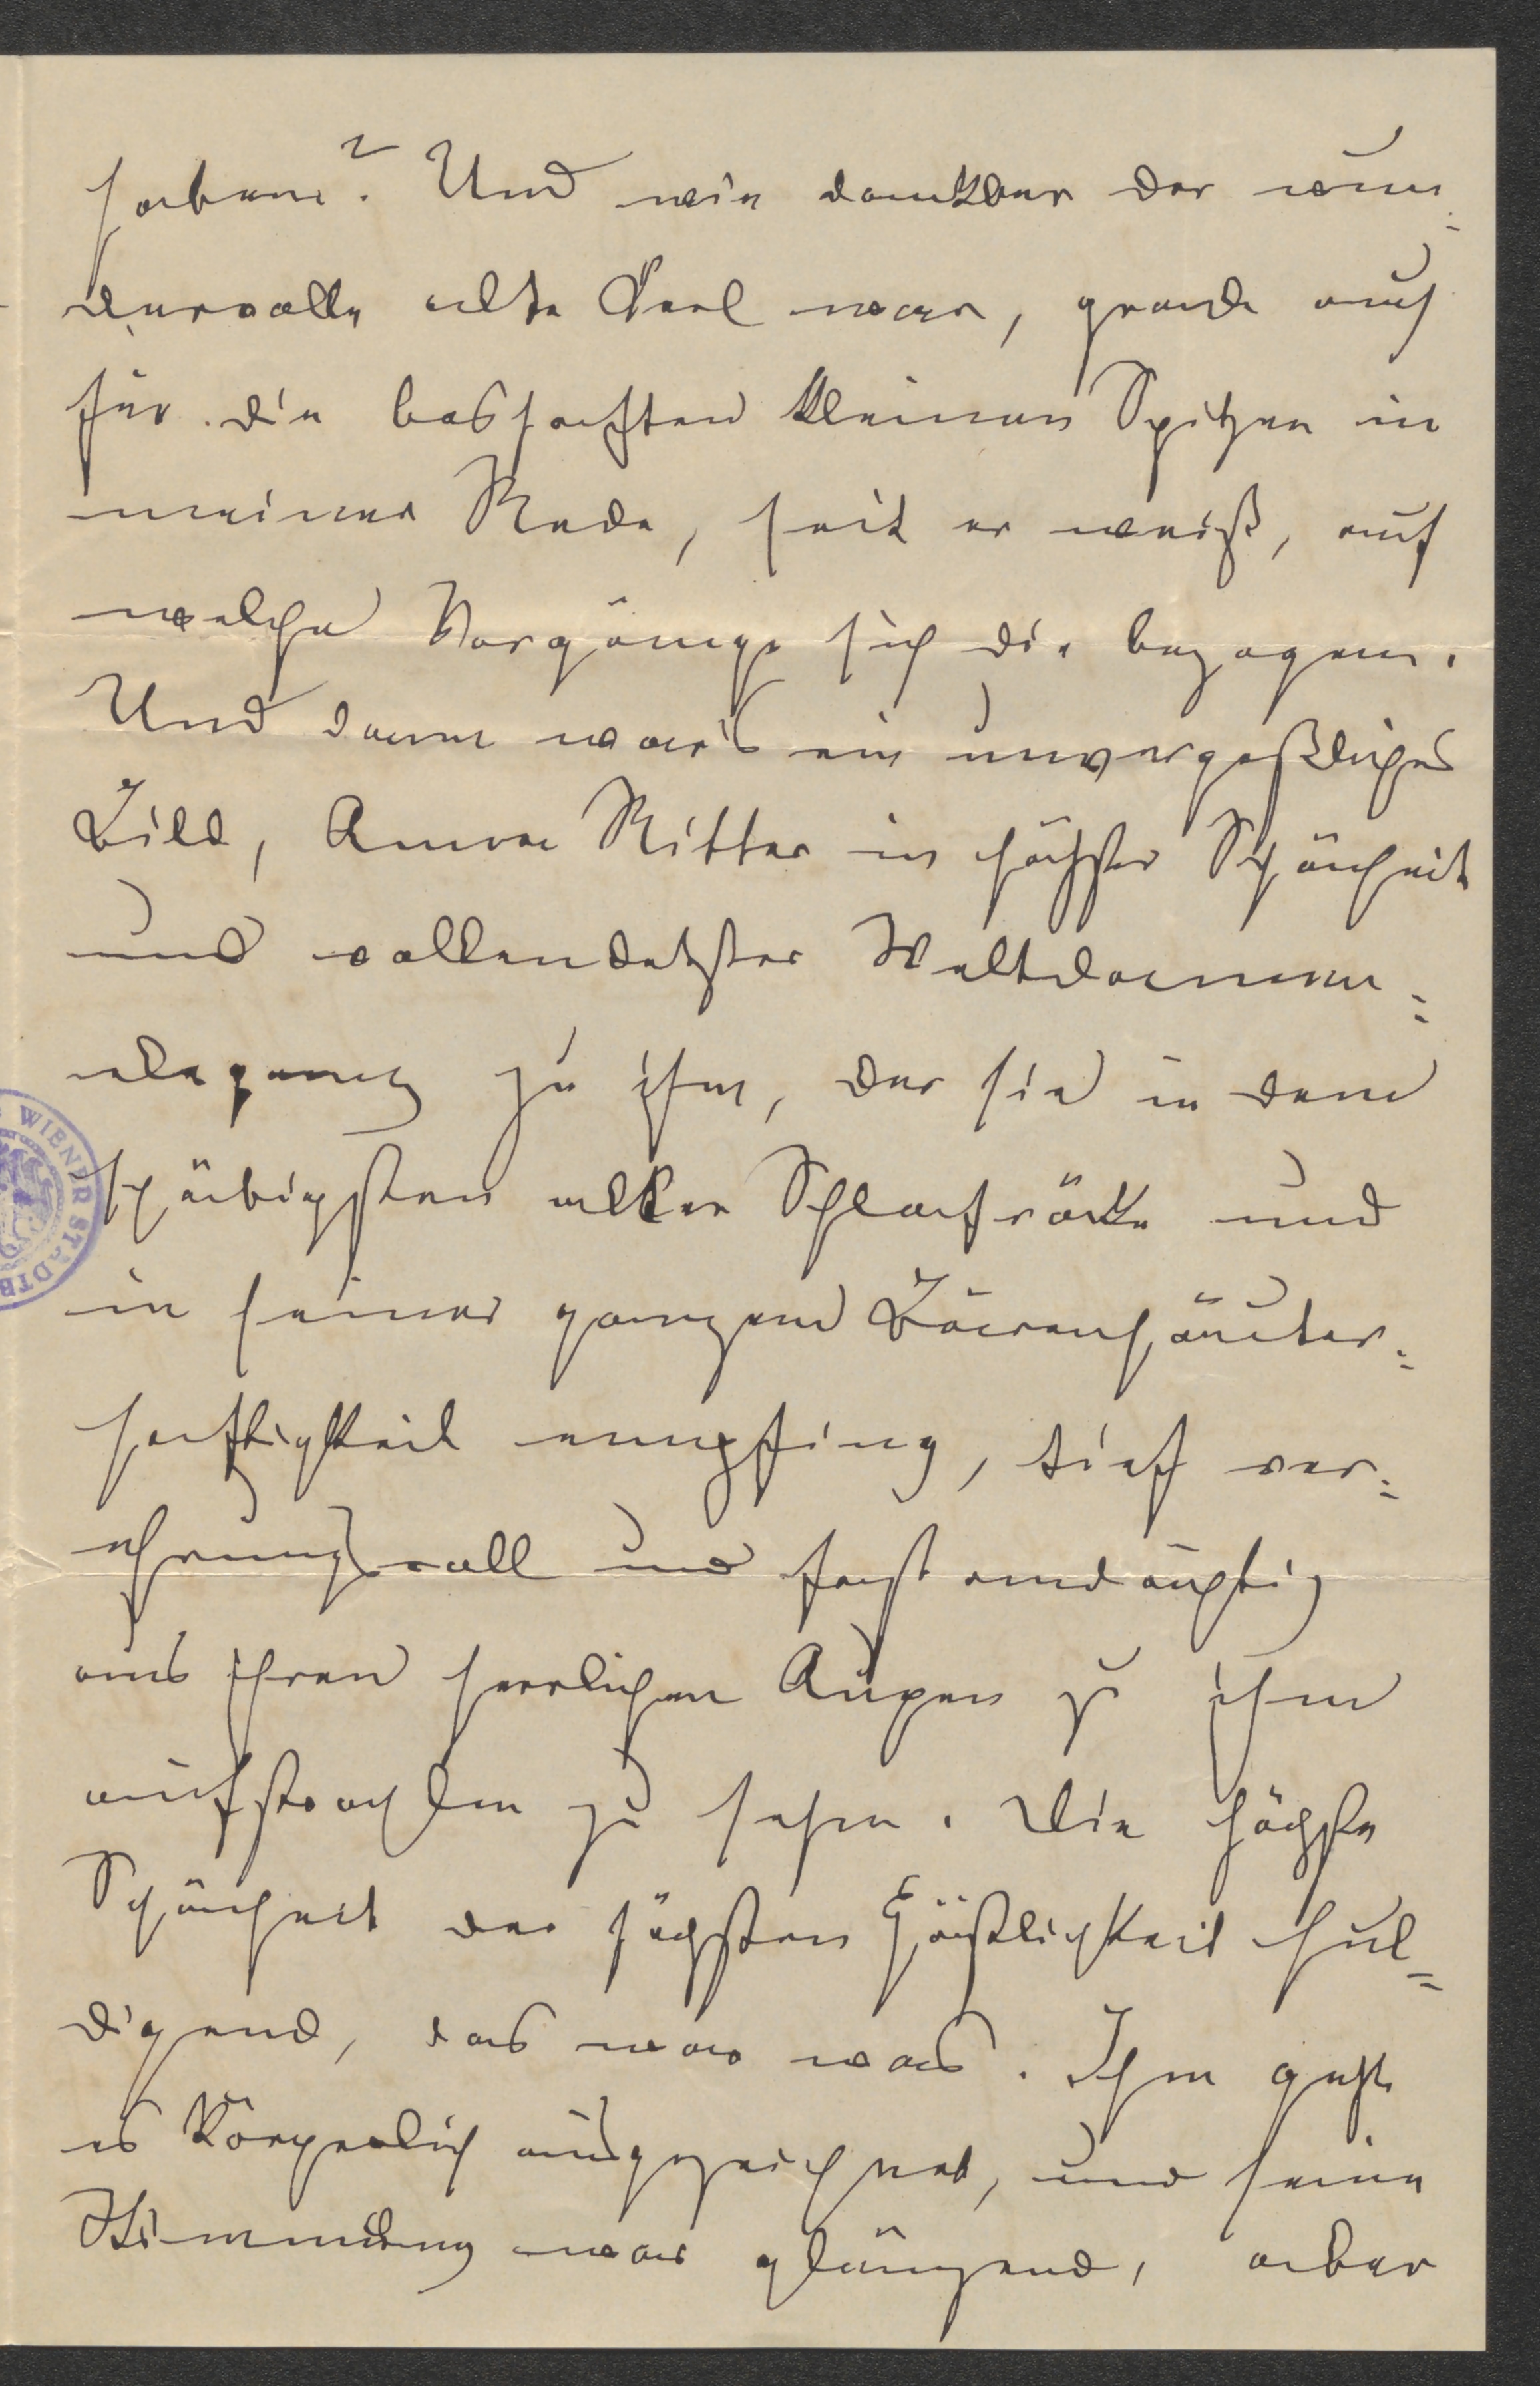 haben? Und wie dankbar der wun-
dervolle alte Kerl war, grade auch
für die boshaften kleinen Spitzen in
meiner Rede, seit er weiß, auf
welche Vorgänge sich die bezogen.
Und dann war's ein unvergeßliches
Bild, Anna Ritter in höchster Schönheit
und vollendetster Weltdamen-
eleganz zu ihm, der sie in dem
schäbigsten aller Schlafröcke und
in seiner ganzen Bärenhäuter-
haftigkeit empfing, tief ver-
ehrungsvoll und fast andächtig
aus ihren herrlichen Augen zu ihm
aufstrahlen zu sehen. Die höchste
Schönheit der höchsten Häßlichkeit hul-
digend, das war was. Ihm geht
es körperlich ausgezeichnet, und seine
Stimmung war glänzend, aber
WIENER STADTB